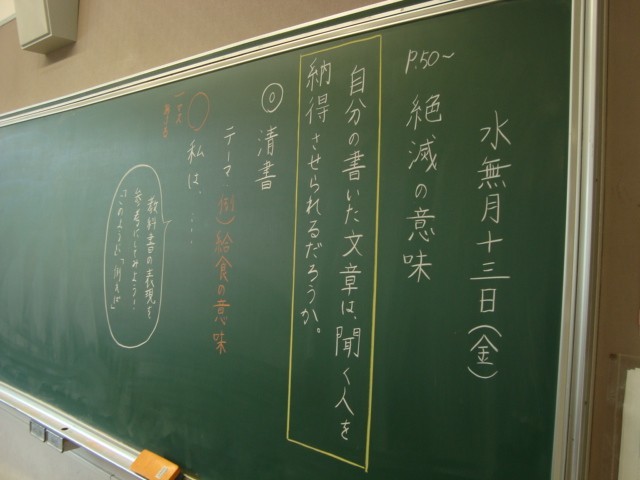 水無月十三日(金)
P.50〜 絶滅の意味
自分の書いた文章は、聞く人を
納得させられるだろうか。
◎清書
テーマ (例)給食の意味
○ 私は、…
教科書の表現を
参考にしてみよう!
このように 例えば